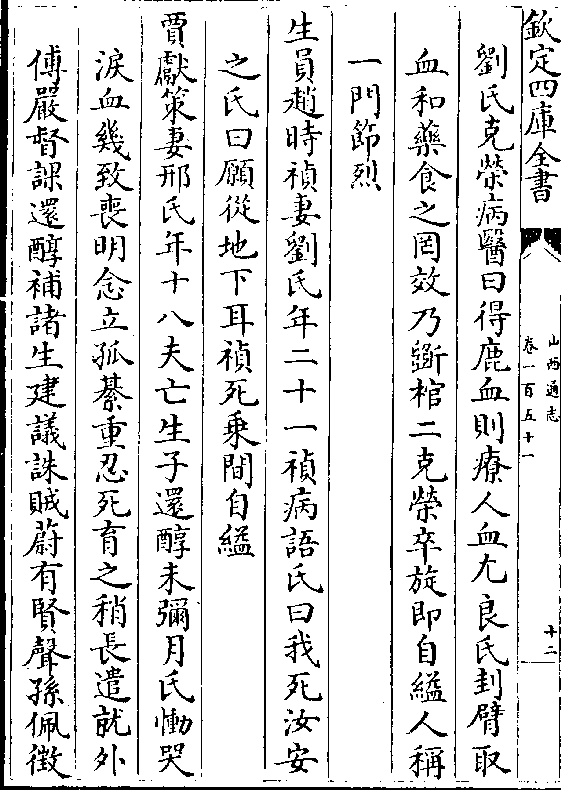 欽定四庫全書
山西通志
卷一百五十一
十二
劉氏克榮病醫曰得鹿血則療人血尤良氏刲臂取
血和藥食之罔效乃斲棺二克榮卒旋即自縊人稱
一門節烈
生員趙時禎妻劉氏年二十一禎病語氏曰我死汝安
之氏曰願從地下耳禎死乗間自縊
賈獻策妻邢氏年十八夫亡生子還醇未彌月氏慟哭
淚血幾致喪明念立孤綦重忍死育之稍長遣就外
傅嚴督課還醇補諸生建議誅賊蔚有賢聲孫佩徵